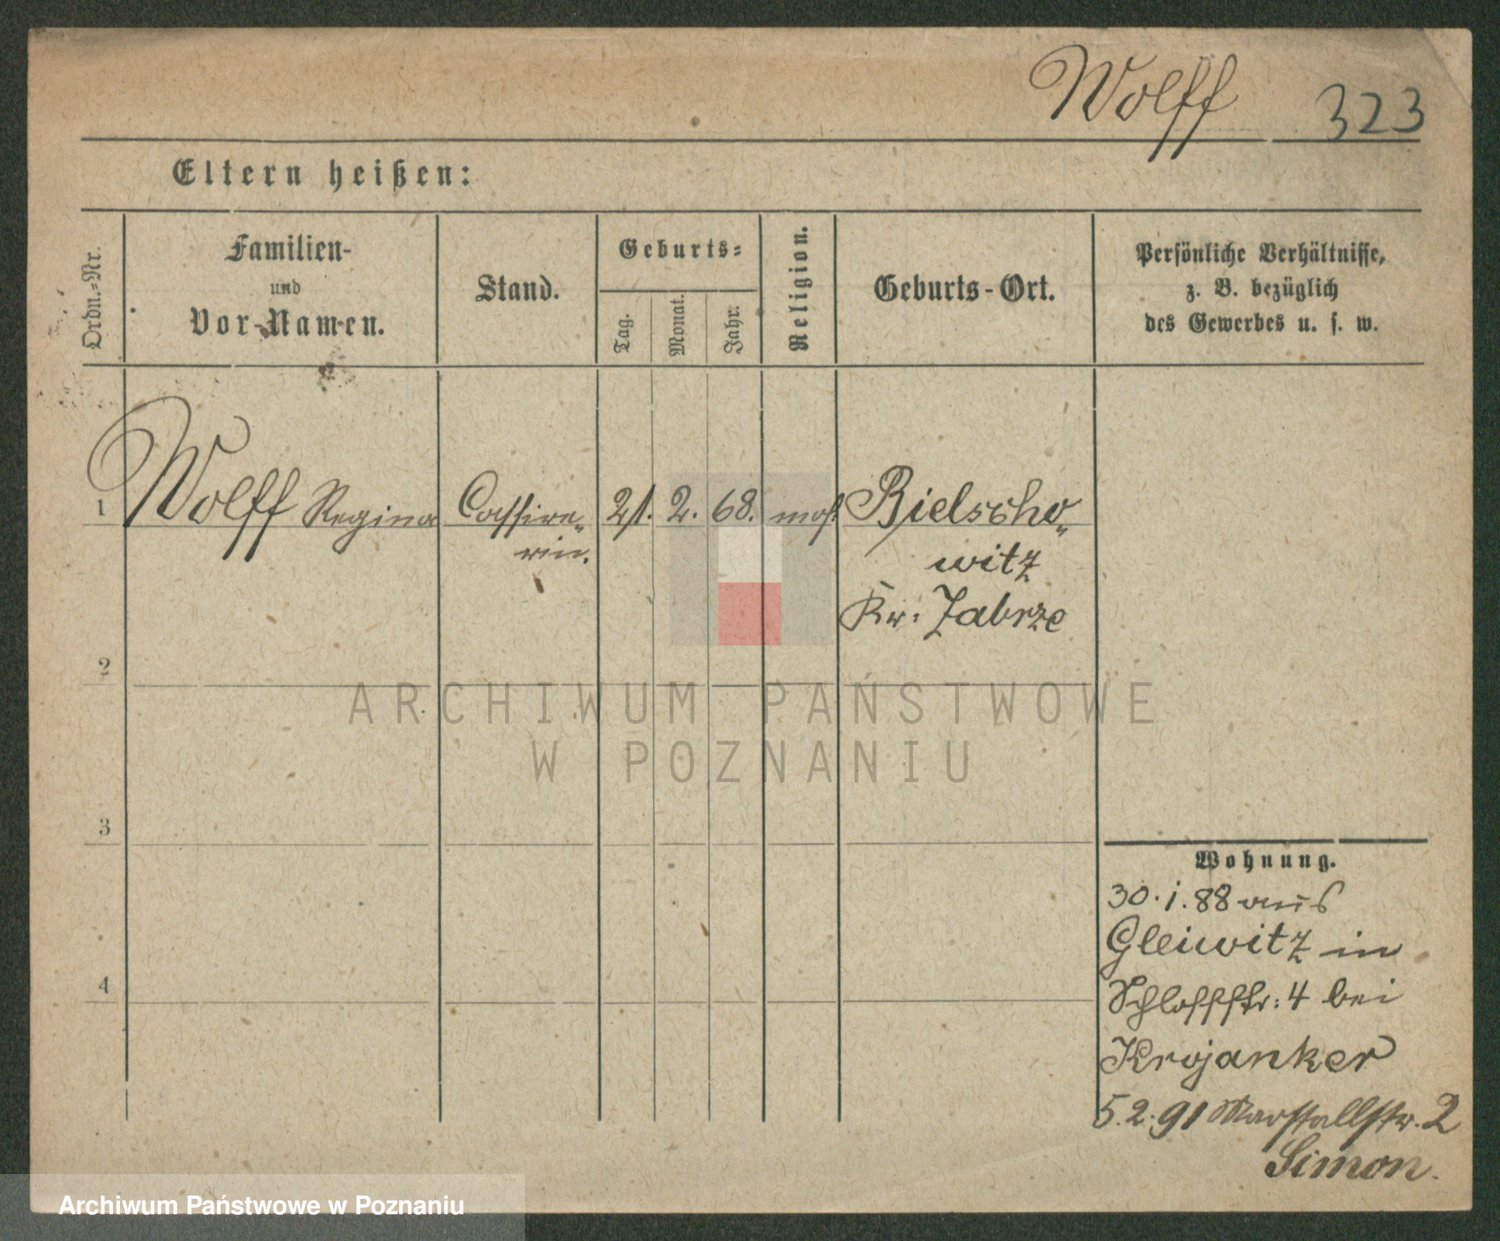 Wolff 323
Eltern heißen:
Ordn.-Nr.
Familien-
und
Vor-Namen.
Stand.
Geburts-
Tag.
Monat.
Jahr.
Religion.
Geburts-Ort.
Persönliche Verhältnisse,
z. B. bezüglich
des Gewerbes u. s. w.
1 Wolff Regina Cassire- 21. 2. 68. mos. Bielscho-
rin.
witz
Kr. Zabrze
2
ARCHIWUM PAŃSTWOWE
W POZNANIU
3
Wohnung.
30. 1. 88 aus
Gleiwitz in
4
Schlossstr: 4 bei
Krojanker
5. 2. 91 Marstallstr. 2
Simon.
Archiwum Państwowe w Poznaniu